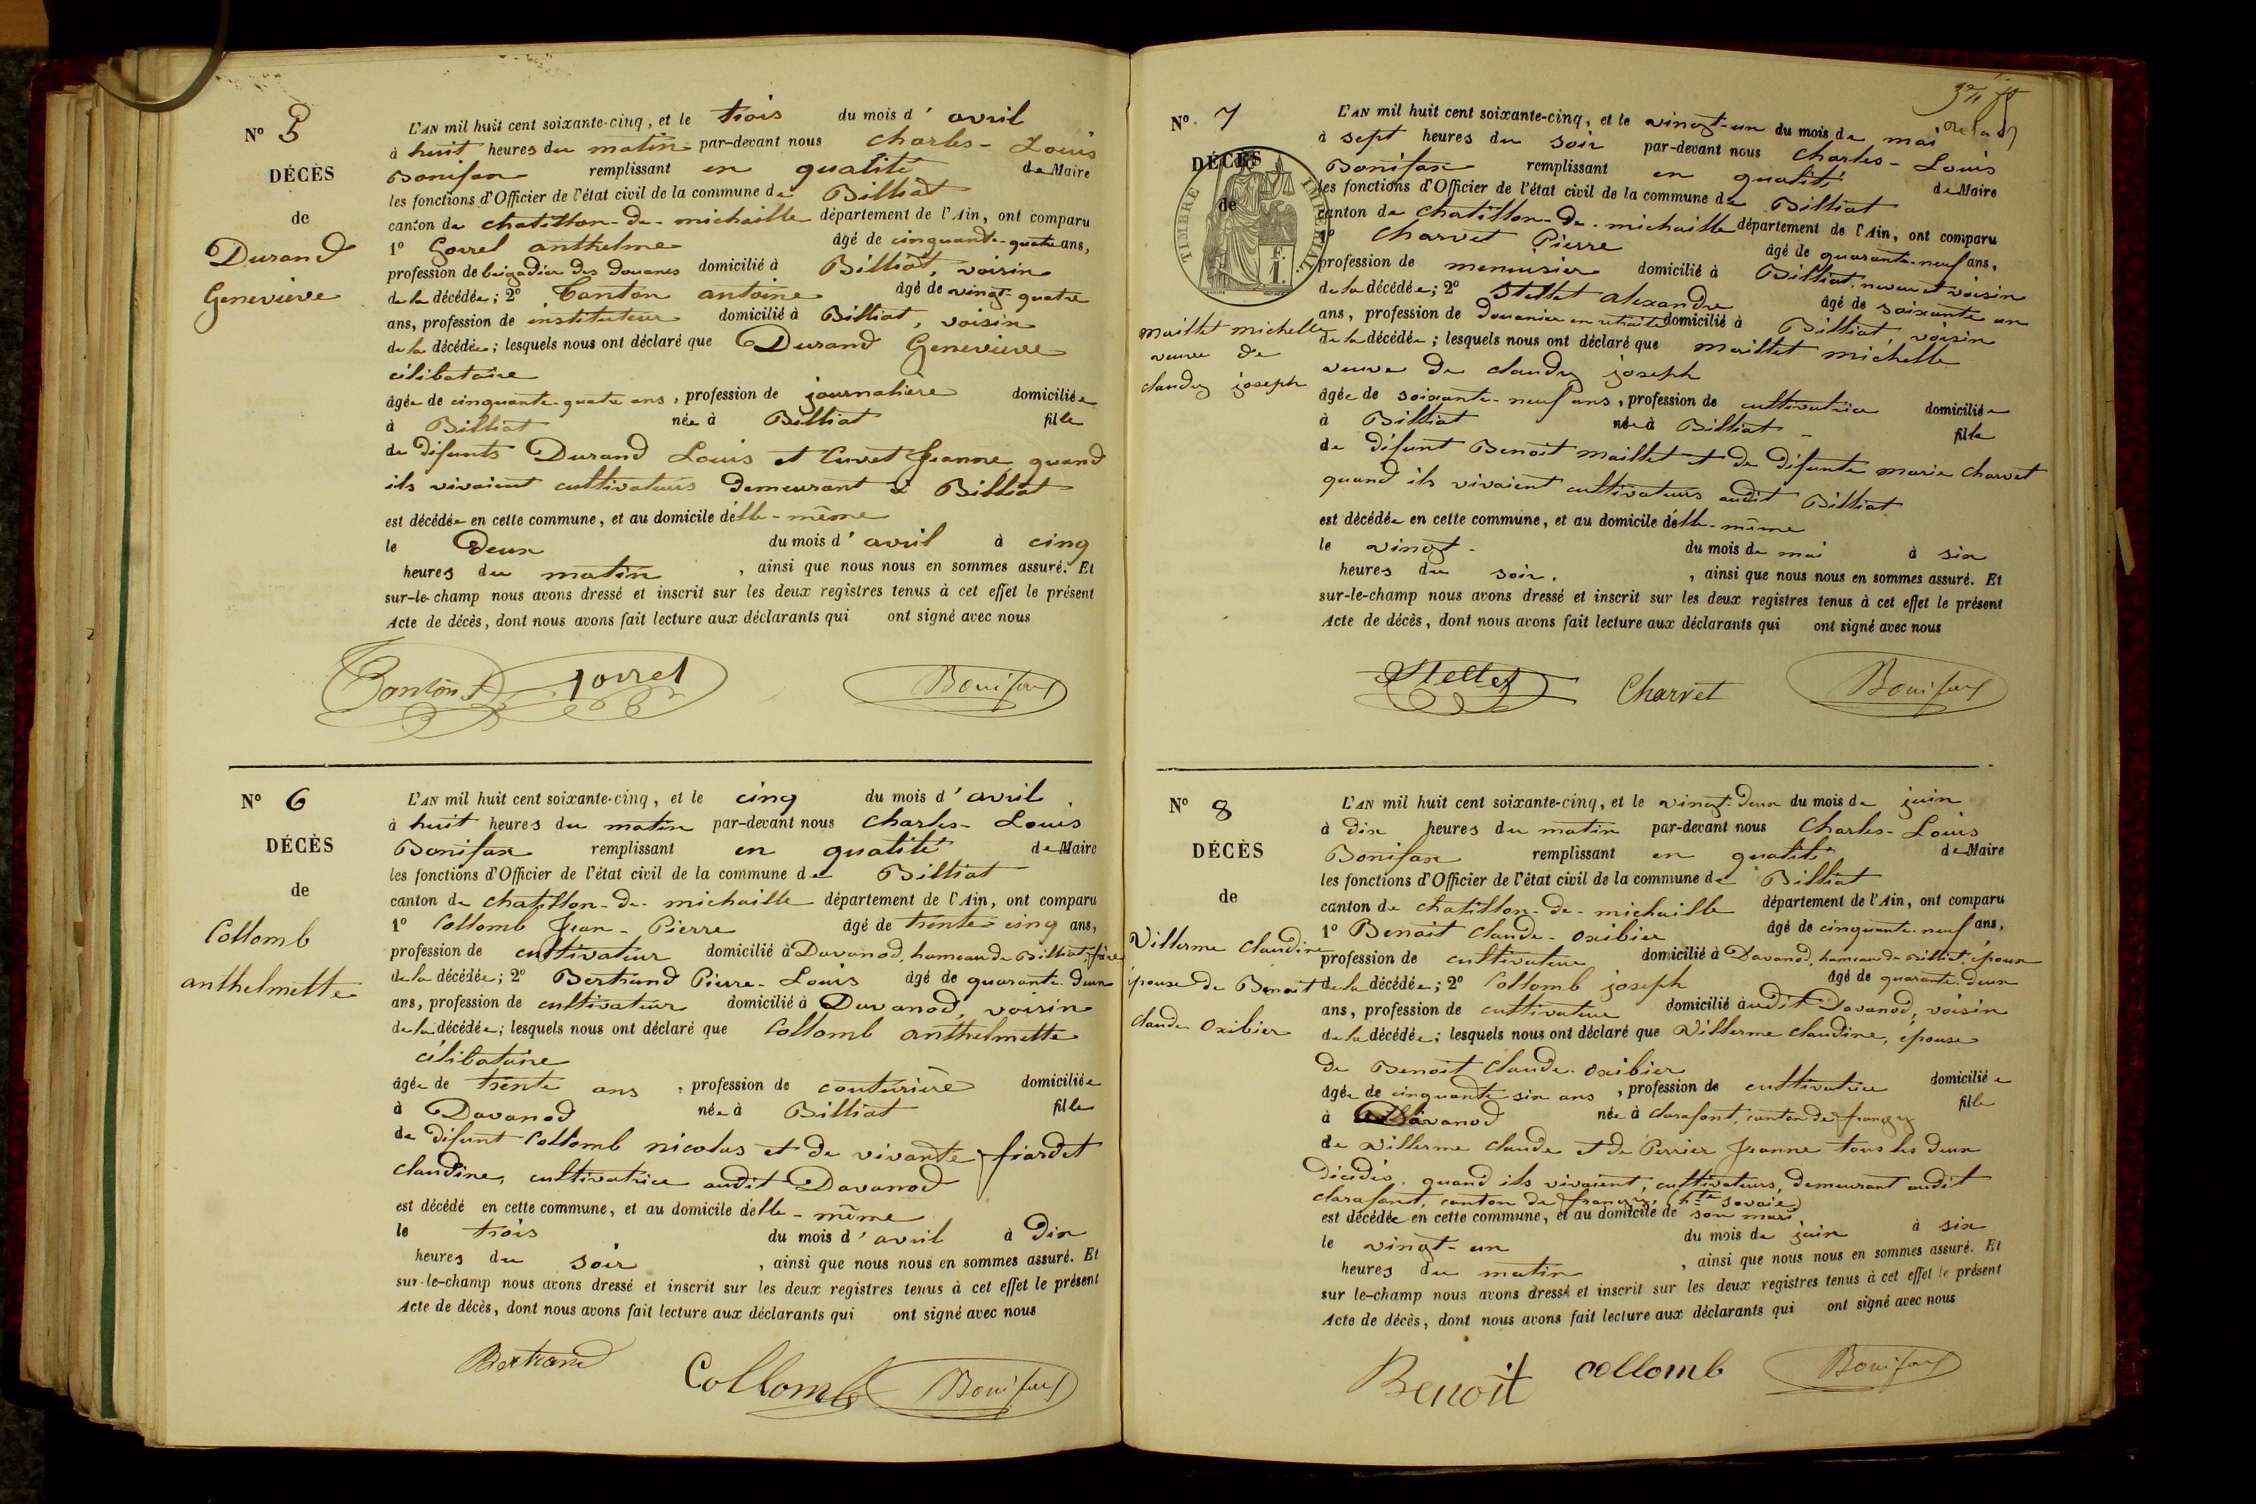 N° 5
DÉCÈS
de
Durand
Geneviève
L'AN mil huit cent soixante-cinq, et le trois du mois d' avril
à huit heures du matin par-devant nous Charles-Louis
Bonifax remplissant en qualité de Maire
les fonctions d'Officier de l'état civil de la commune de Billiat
canton de Chatillon-de-michaille département de l'Ain, ont comparu
1° Gorrel anthelme âgé de cinquante-quatre ans,
profession de brigadier des douanes domicilié à Billiat, voisin
de la décédée; 2° Canton antoine âgé de vingt-quatre
ans, profession de instituteur domicilié à Billiat, voisin
de la décédée; lesquels nous ont déclaré que Durand Geneviève
célibataire
âgée de cinquante-quatre ans, profession de journalière domiciliée
à Billiat née à Billiat fille
de défunts Durand Louis et Cuvet Jeanne, quand
ils vivaient cultivateurs demeurant à Billiat
est décédée en cette commune, et au domicile d'elle-même
le deux du mois d' avril à cinq
heures du matin, ainsi que nous nous en sommes assuré. Et
sur-le-champ nous avons dressé et inscrit sur les deux registres tenus à cet effet le présent
Acte de décès, dont nous avons fait lecture aux déclarants qui ont signé avec nous
Canton A Gorrel Bonifax
N° 6
DÉCÈS
de
Collomb
anthelmette
L'AN mil huit cent soixante-cinq, et le cinq du mois d' avril
à huit heures du matin par-devant nous Charles-Louis
Bonifax remplissant en qualité de Maire
les fonctions d'Officier de l'état civil de la commune de Billiat
canton de Chatillon-de-michaille département de l'Ain, ont comparu
1° Collomb Jean-Pierre âgé de trente cinq ans,
profession de cultivateur domicilié à Davanod, hameau de Billiat, frère
de la décédée; 2° Bertrand Pierre-Louis âgé de quarante-deux
ans, profession de cultivateur domicilié à Davanod, voisin
de la décédée; lesquels nous ont déclaré que Collomb anthelmette
célibataire
âgée de trente ans, profession de couturière domiciliée
à Davanod née à Billiat fille
de défunt Collomb nicolas et de vivante fiardet
claudine, cultivatrice audit Davanod
est décédé en cette commune, et au domicile d'elle-même
le trois du mois d' avril à dix
heures du soir, ainsi que nous nous en sommes assuré. Et
sur-le-champ nous avons dressé et inscrit sur les deux registres tenus à cet effet le présent
Acte de décès, dont nous avons fait lecture aux déclarants qui ont signé avec nous
Bertrand Collomb Bonifax
N° 7
DÉCÈS
de
TIMBRE IMPERIAL
maillet michelle
veuve de
claudy joseph
L'AN mil huit cent soixante-cinq, et le vingt-un du mois de mai
à sept heures du soir par-devant nous Charles-Louis
Bonifax remplissant en qualité de Maire
les fonctions d'Officier de l'état civil de la commune de Billiat
canton de Chatillon-de-michaille département de l'Ain, ont comparu
1° Charvet Pierre âgé de quarante-neuf ans,
profession de menuisier domicilié à Billiat, neveu et voisin
de la décédée; 2° Stellet alexandre âgé de soixante un
ans, profession de douanier en retraite domicilié à Billiat, voisin
de la décédée; lesquels nous ont déclaré que maillet michelle
veuve de claudy joseph
âgée de soixante-neuf ans, profession de cultivatrice domiciliée
à Billiat née à Billiat - fille
de défunt Benoit maillet et de défunte marie Charvet
quand ils vivaient cultivateurs audit Billiat
est décédée en cette commune, et au domicile d'elle-même
le vingt- du mois de mai à six
heures du soir., ainsi que nous nous en sommes assuré. Et
sur-le-champ nous avons dressé et inscrit sur les deux registres tenus à cet effet le présent
Acte de décès, dont nous avons fait lecture aux déclarants qui ont signé avec nous
Stellet Charvet Bonifax
N° 8
DÉCÈS
de
Villerme claudine
épouse de Benoit
claude oxibier
L'AN mil huit cent soixante-cinq, et le vingt-deux du mois de juin
à dix heures du matin par-devant nous Charles-Louis
Bonifax remplissant en qualité de Maire
les fonctions d'Officier de l'état civil de la commune de Billiat
canton de Chatillon-de-michaille département de l'Ain, ont comparu
1° Benoit claude-oxibier âgé de cinquante-neuf ans,
profession de cultivateur domicilié à Davanod, hameau de Billiat, époux
de la décédée; 2° Collomb joseph âgé de quarante-deux
ans, profession de cultivateur domicilié audit Davanod, voisin
de la décédée; lesquels nous ont déclaré que Villerme claudine, épouse
de Benoit claude-oxibier
âgée de cinquante six ans, profession de cultivatrice domiciliée
à Davanod née à clarafont, canton de frangy fille
de Villerme claude et de Perrier Jeanne tous les deux
décédés, quand ils vivaient, cultivateurs, demeurant audit
clarafont, canton de frangy, (hte savoie)
est décédée en cette commune, et au domicile de son mari
le vingt-un du mois de juin à six
heures du matin, ainsi que nous nous en sommes assuré. Et
sur le-champ nous avons dressé et inscrit sur les deux registres tenus à cet effet le présent
Acte de décès, dont nous avons fait lecture aux déclarants qui ont signé avec nous
Benoit collomb Bonifax